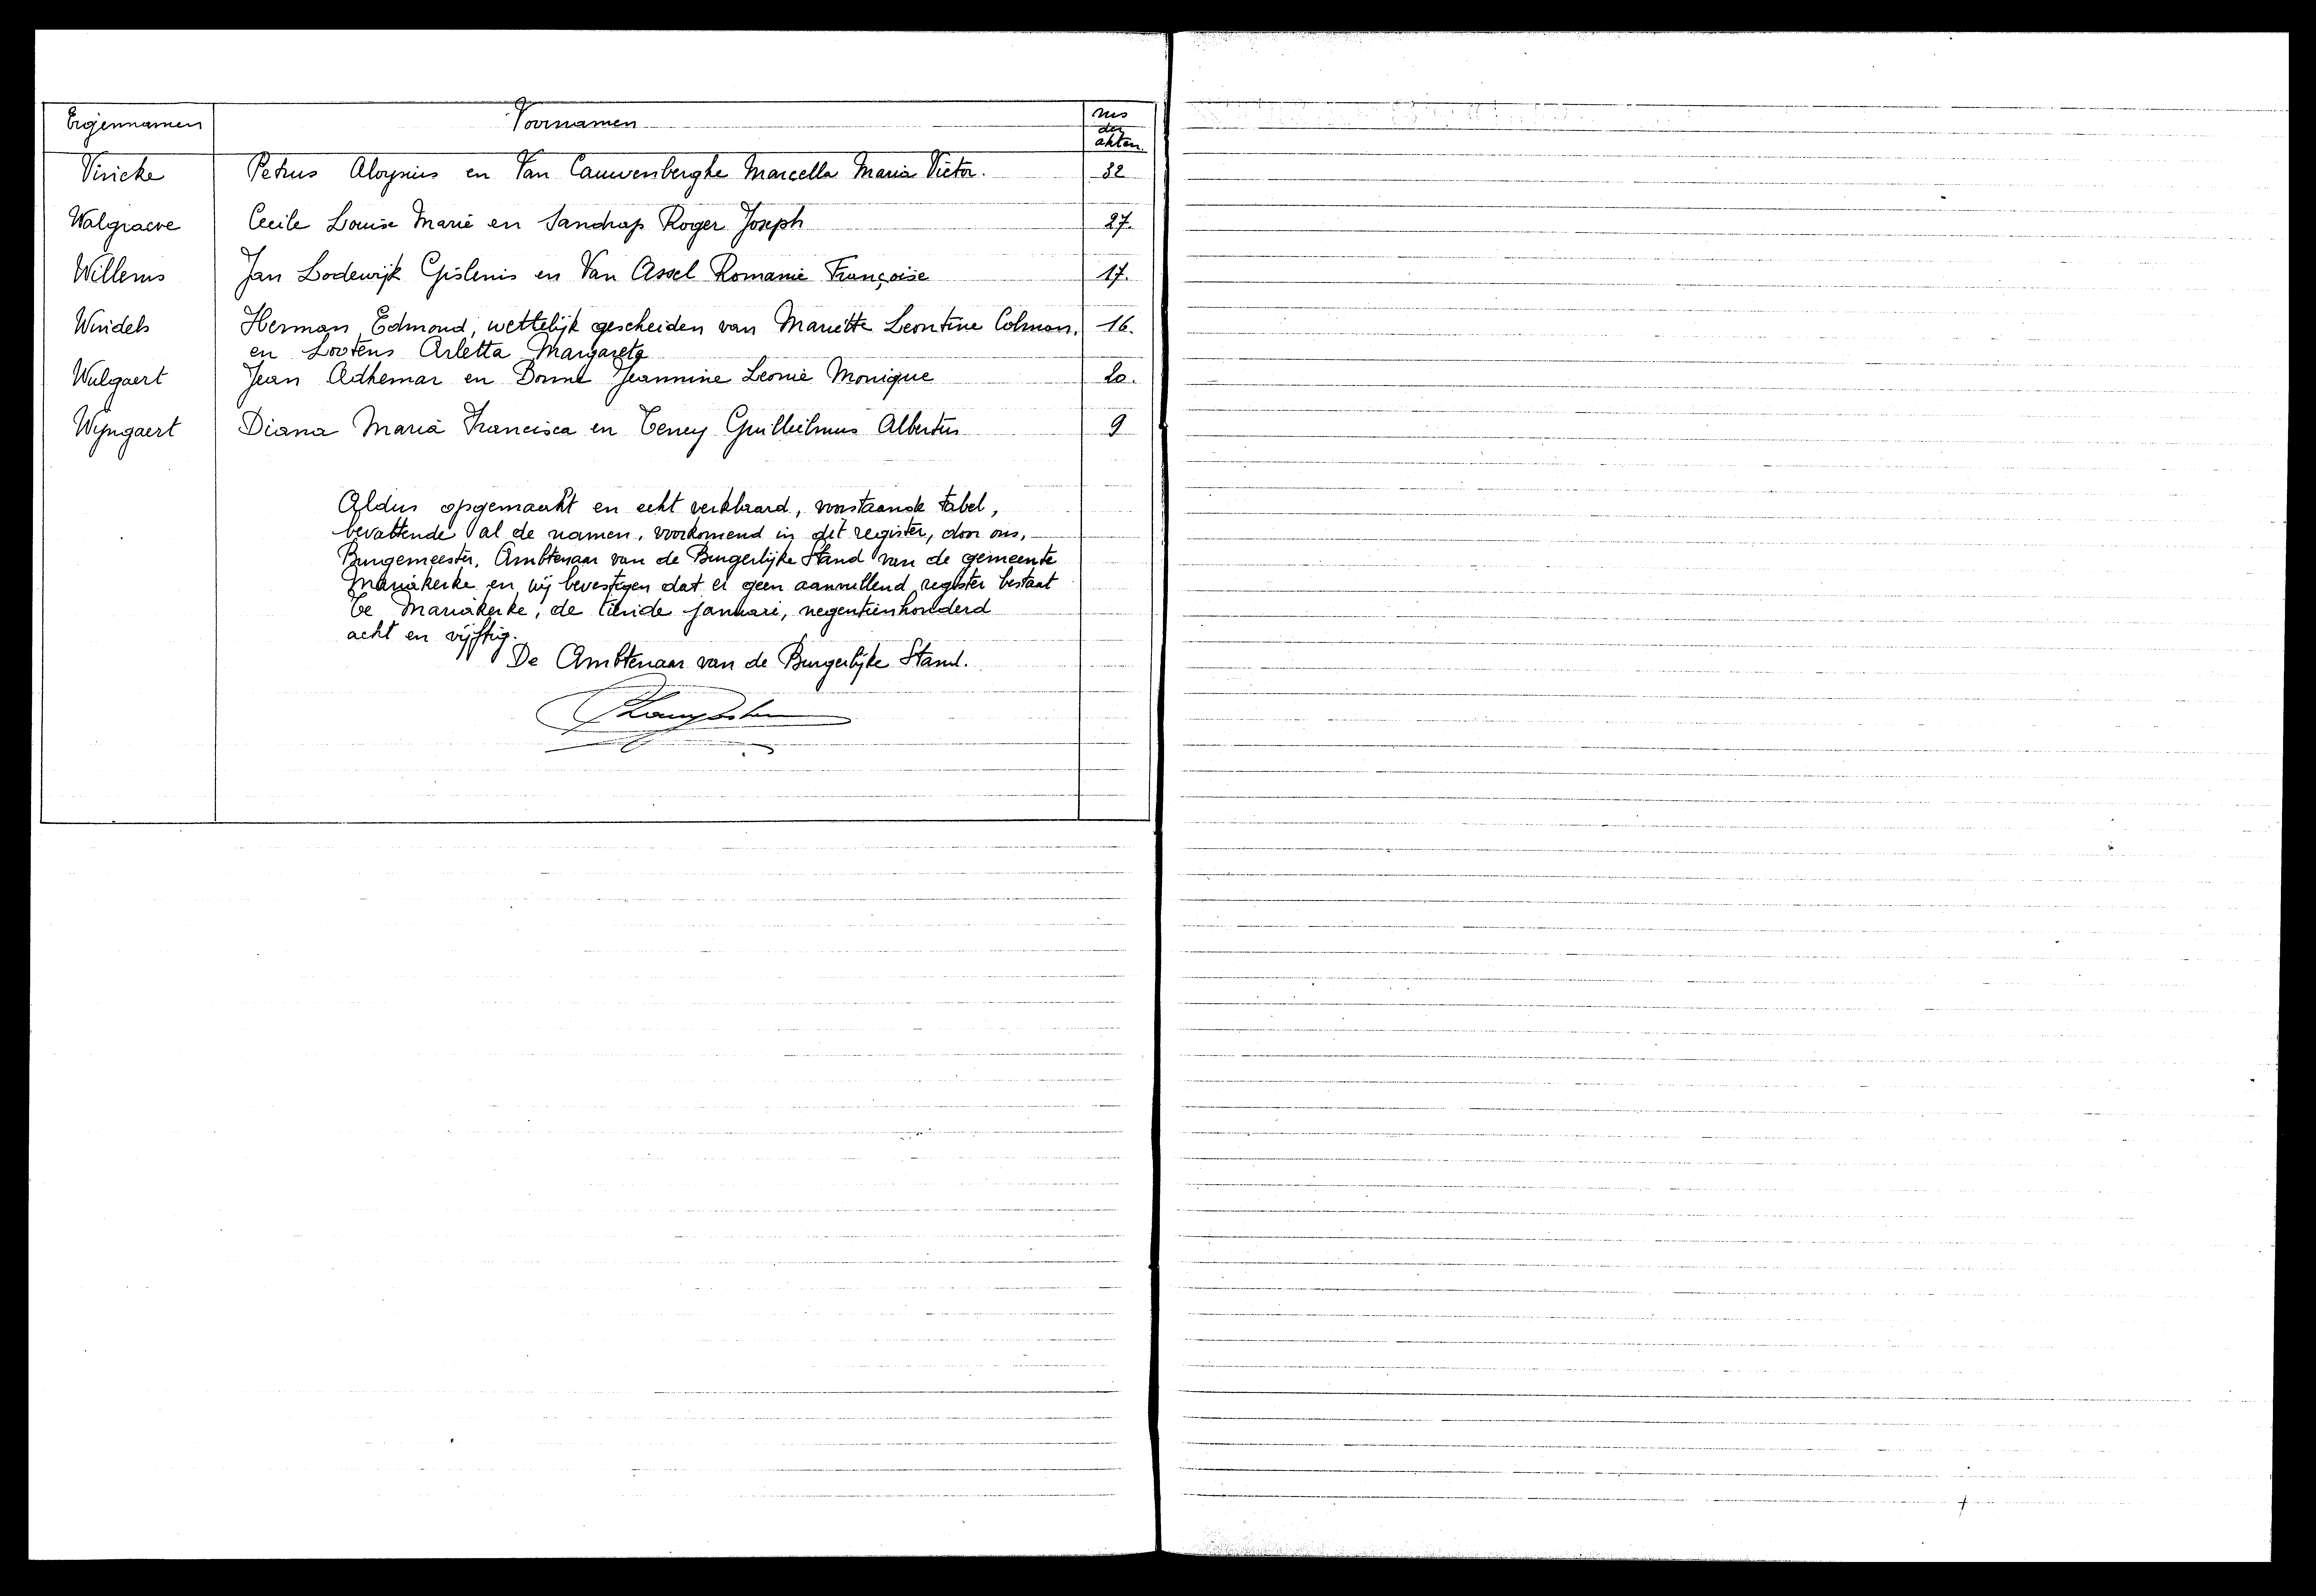 Eigennamen Voornamen nrs der akten.
Viricke Petrus Aloysius en Van Cauwenberghe Marcella Maria Victor. 32
Walgraeve Cecile Louise Marie en Sandrap Roger Joseph 27.
Willems Jan Lodewijk Gislenis en Van Assel Romanie Françoise 17.
Windels Herman Edmond, wettelijk gescheiden van Mariette Leontine Colman, 16.
en Lootens Arletta Margareta
Wulgaert Jean Adhemar en Bonne Jeannine Leonie Monique 20.
Wijngaert Diana Maria Francisca en Teney Guilhelmus Albertus 9
Aldus opgemaakt en echt verklaard, voorstaande tabel,
bevattende al de namen, voorkomend in dit register, door ons,
Burgemeester, Ambtenaar van de Burgerlijke Stand van de gemeente
Mariakerke en wij bevestigen dat er geen aanvullend register bestaat
Te Mariakerke, de tiende januari, negentienhonderd
acht en vijftig.
De Ambtenaar van de Burgerlijke Stand.